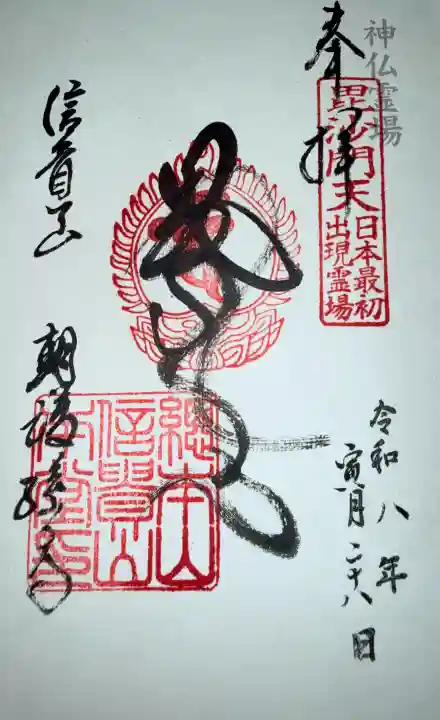 神仏霊場
奉拝
毘沙門天
日本最初
出現霊場
信貴山
朝護孫子
総本山
信貴山
令和八年
寅月二十八日